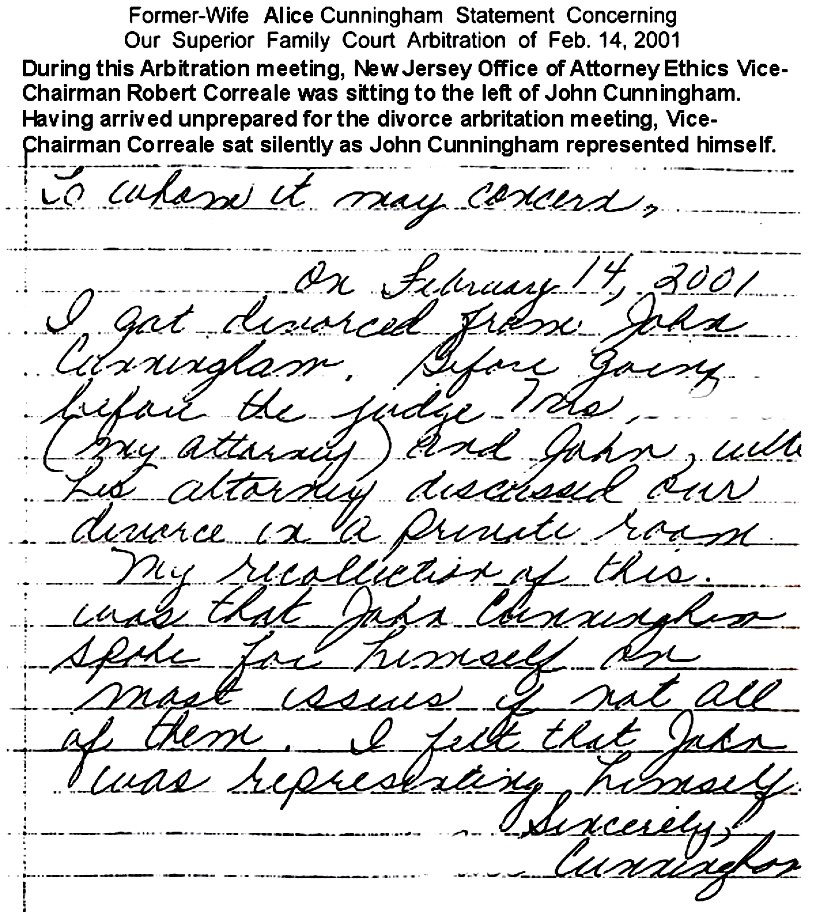 Former-Wife Alice Cunningham Statement Concerning
Our Superior Family Court Arbitration of Feb. 14, 2001
During this Arbitration meeting, New Jersey Office of Attorney Ethics Vice-
Chairman Robert Correale was sitting to the left of John Cunningham.
Having arrived unprepared for the divorce arbritation meeting, Vice-
Chairman Correale sat silently as John Cunningham represented himself.
To whom it may concern,
On February 14, 2001
I got divorced from John
Cunningham. Before going
before the judge Mrs.
(my attorney) and John, with
his attorney discussed our
divorce in a private room
My recollection of this.
was that John Cunningham
spoke for himself on
most issues if not all
of them. I felt that John
was representing himself
Sincerely,
Cunningham